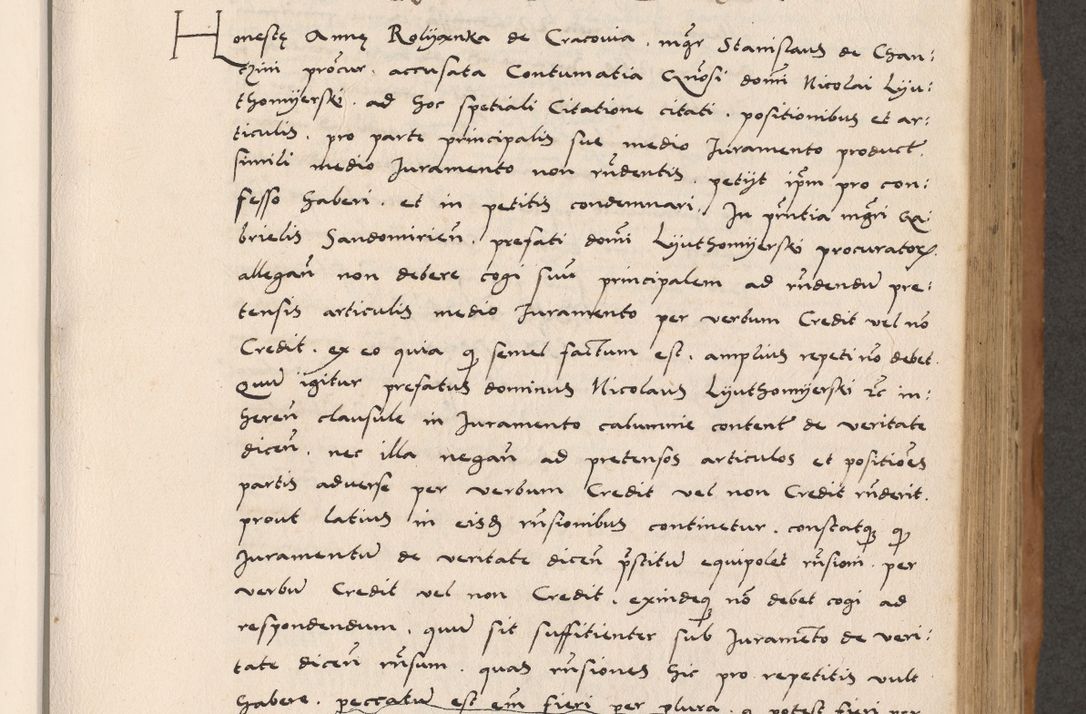 Honestę Annę Rolyanka de Cracovia . mḡr Stanislaus de Chan:
czini procur̄ . accusata Contumatia Gn̄osi domī Nicolai Lyu:
thomyerski . ad hoc spetiali Citatione citati . positionibus et ar:
ticulis . pro parte principalis sue medio Iuramento product̄ .
simili medio Iuramento non rn̄dentis . petyt ip̄m pro con:
fesso haberi . et in petitis condemnari . In pn̄tia mḡri Ga:
brielis Sandomirien̄ . prefati domī Lyuthomyerski procurator̄
allegan̄ non debere cogi suū principalem ad rn̄dendū pre:
tensis articulis medio Iuramento per verbum Credit vel nō
Credit . ex eo quia q̄ semel factum est . amplius repeti nō debet .
Quū igitur prefatus dominus Nicolaus Lyuthomyerski ꝛc̄ in:
heren̄ clausule in Iuramento calumnie content̄ de veritate
dicen̄ . nec illa negan̄ ad pretensos articulos et positiōes
partis adverse per verbum Credit vel non Credit rn̄derit .
prout latius in eisd̄ rn̄sionibus continetur . constatq̄ q̄
Iuramentū de veritate dicen̄ p̄stitū equipolet rn̄sioni . per
verbū Credit vel non Credit . exindeq̄ nō debet cogi ad
respondendum . quū sit suffitienter sub Iuramēto de veri:
tate dicen̄ rn̄sum . quas rn̄siones hic pro repetitis vult
habere . peccatū est em̄ fieri per plura . q potest fieri per